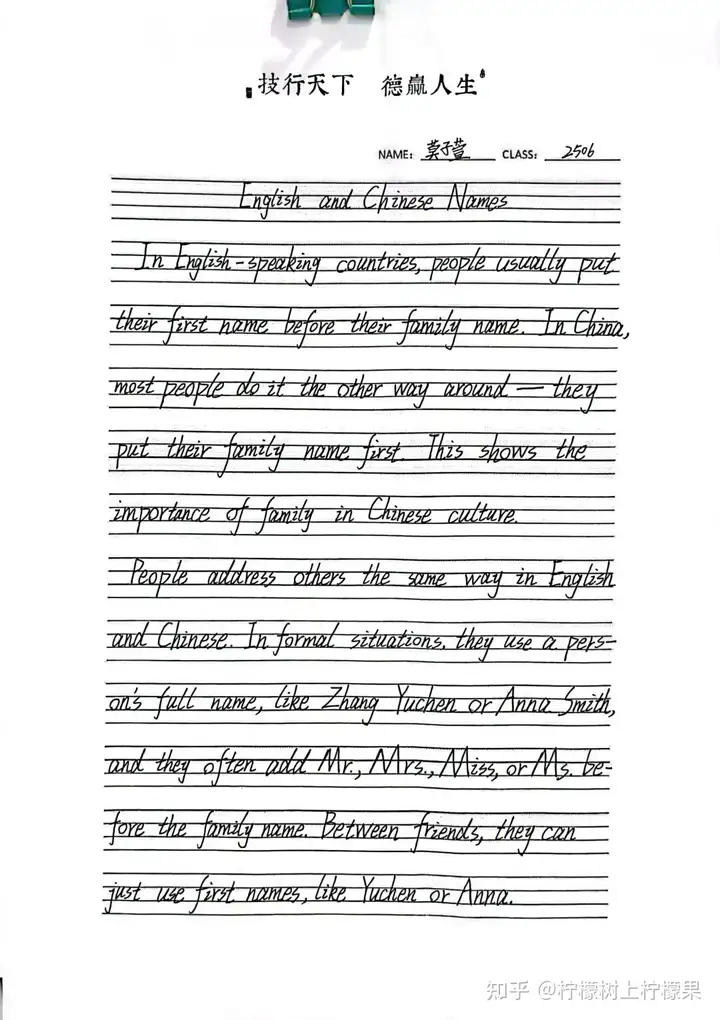 技行天下 德赢人生
NAME: 莫子萱 CLASS: 2506
English and Chinese Names
In English-speaking countries, people usually put
their first name before their family name. In China,
most people do it the other way around — they
put their family name first. This shows the
importance of family in Chinese culture.
People address others the same way in English
and Chinese. In formal situations, they use a pers-
on's full name, like Zhang Yuchen or Anna Smith,
and they often add Mr., Mrs., Miss, or Ms. be-
fore the family name. Between friends, they can
just use first names, like Yuchen or Anna.
知乎 @柠檬树上柠檬果